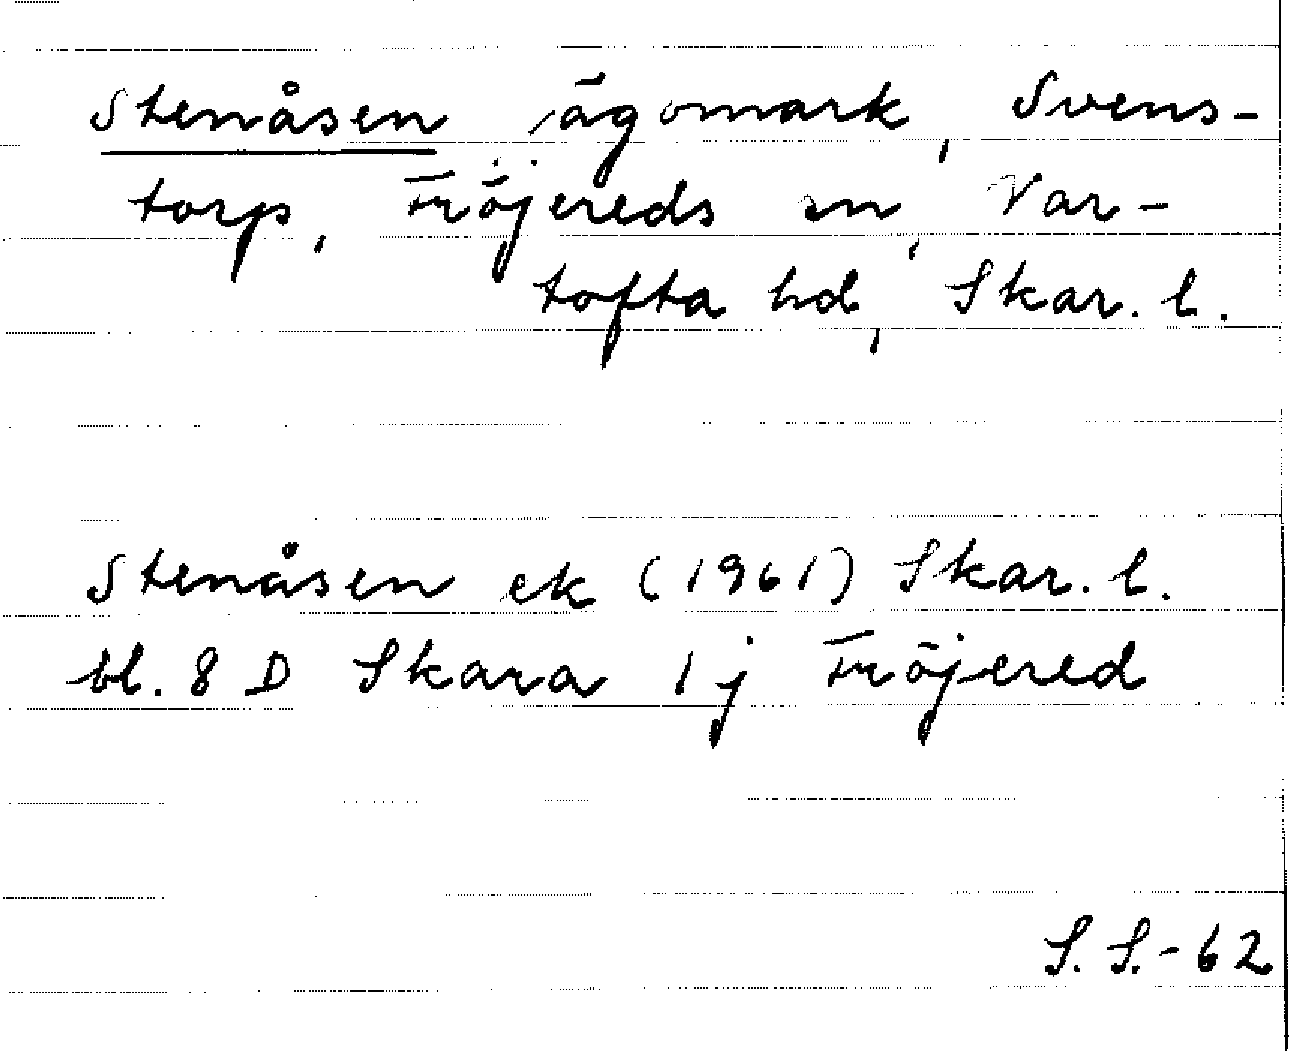 Stenåsen, ägomark, Svens-
torp, Fröjereds sn, Var-
tofta hd, Skar. l.
Stenåsen ek (1961) Skar. l.
bl. 8 D Skara 1 j Fröjered
S. S. - 62